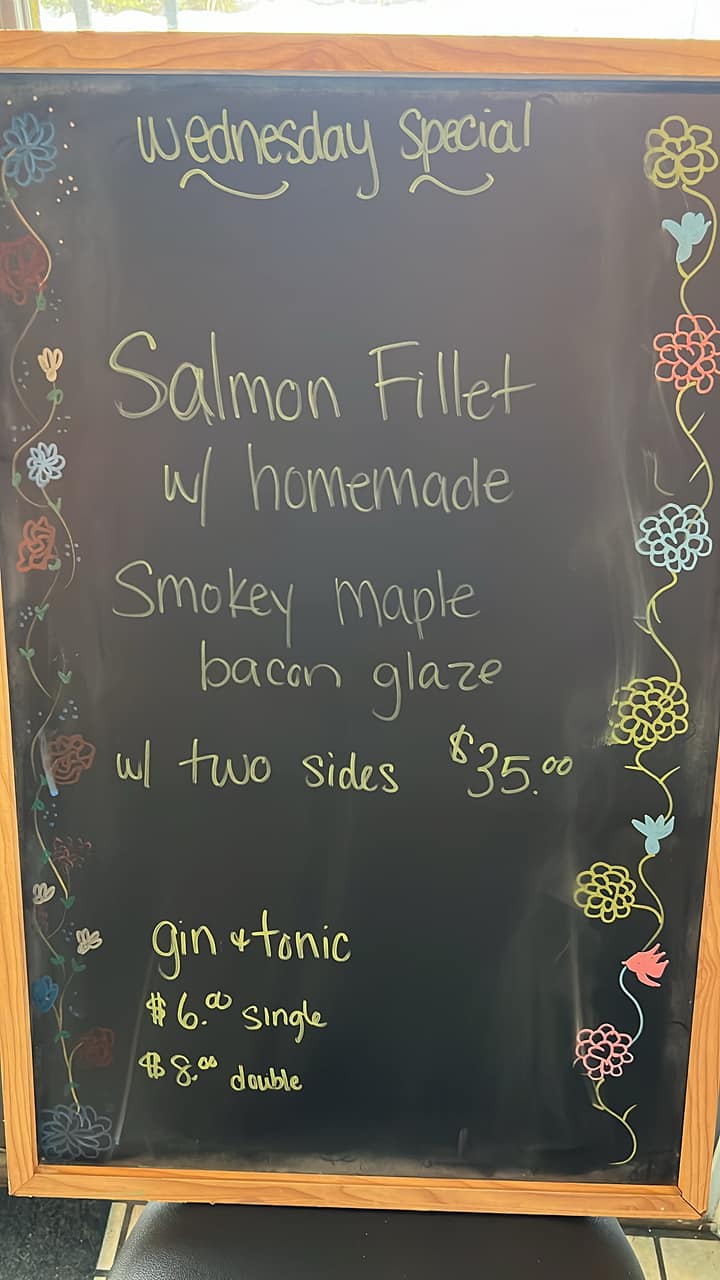 Wednesday Special
Salmon Fillet
w/ homemade
Smokey maple
bacon glaze
w/ two sides $35.00
gin & tonic
$6.00 single
$8.00 double